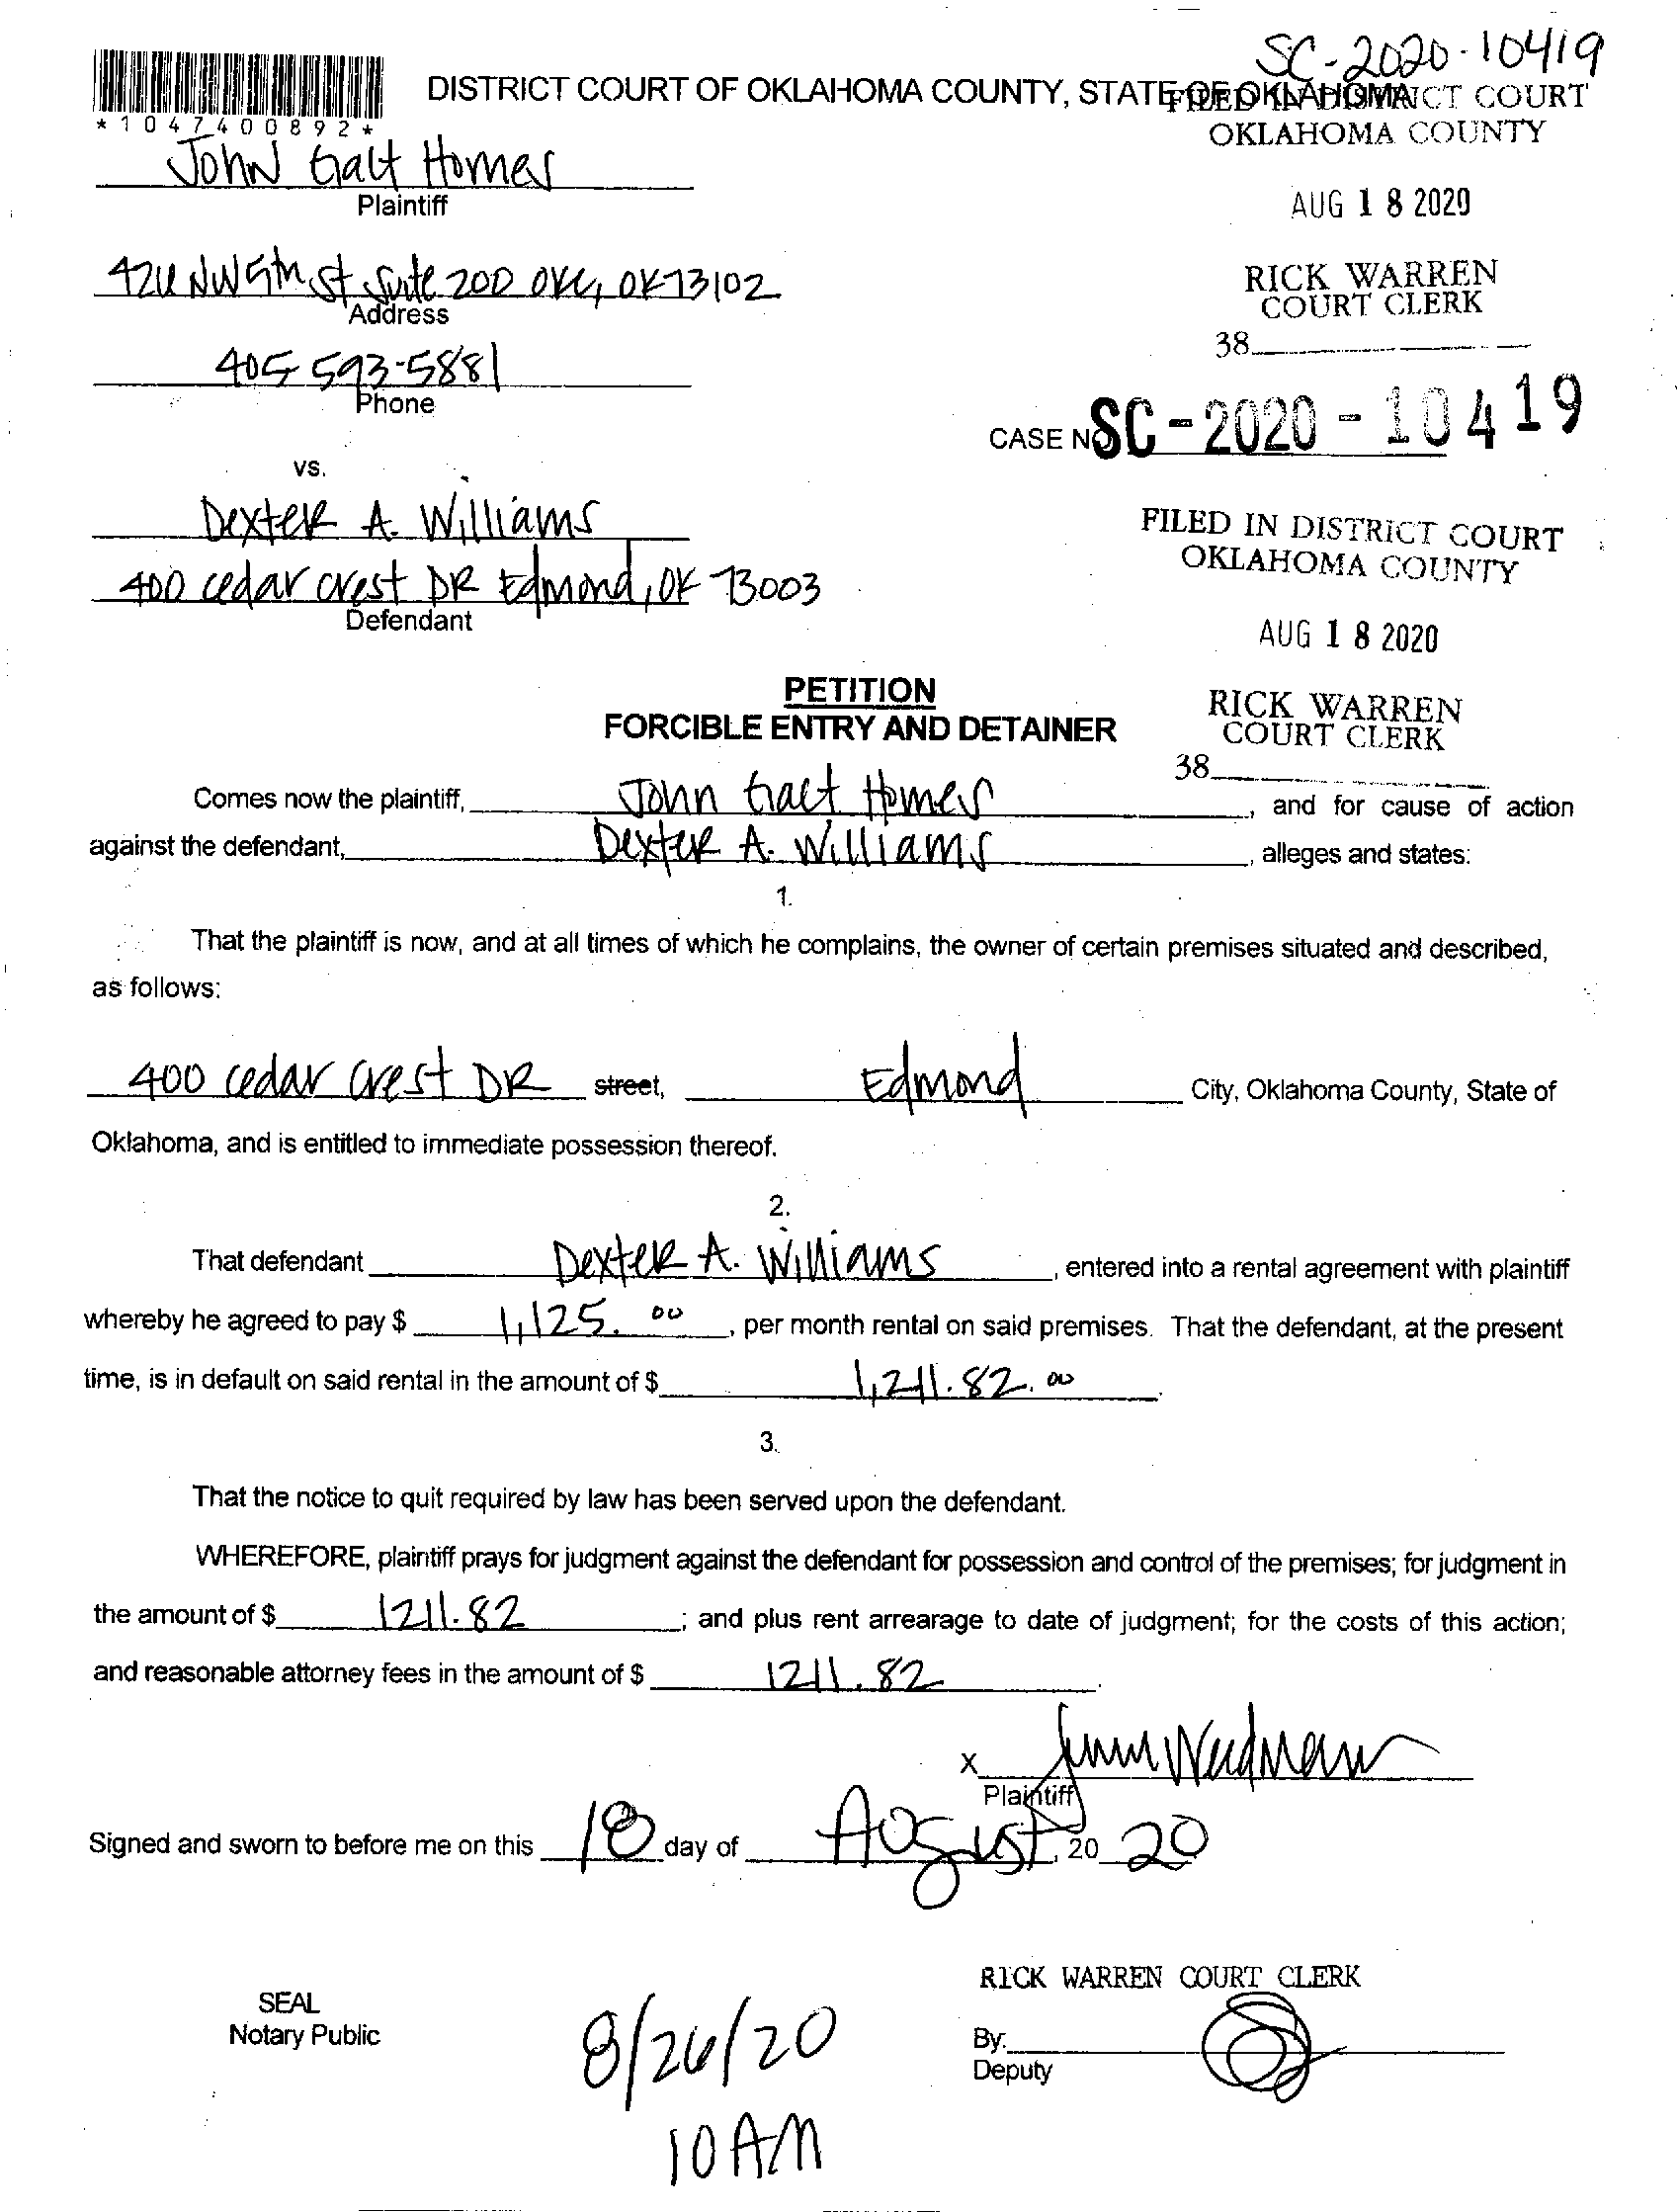 SC-2020-10419
DISTRICT COURT OF OKLAHOMA COUNTY, STATE OF OKLAHOMA
FILED IN DISTRICT COURT
OKLAHOMA COUNTY
*1047400892*
John Galt Homes
Plaintiff
AUG 18 2020
RICK WARREN
COURT CLERK
38
NW 5th St Suite 200 OKC, OK 73102
Address
405 593-5881
Phone
CASE NO. SC-2020-10419
vs.
Dexter A. Williams
400 cedar crest DR Edmond, OK 73003
Defendant
FILED IN DISTRICT COURT
OKLAHOMA COUNTY
AUG 18 2020
RICK WARREN
COURT CLERK
38
PETITION
FORCIBLE ENTRY AND DETAINER
Comes now the plaintiff, John Galt Homes, and for cause of action
against the defendant, Dexter A. Williams, alleges and states:
1.
That the plaintiff is now, and at all times of which he complains, the owner of certain premises situated and described,
as follows:
400 cedar crest DR street, Edmond City, Oklahoma County, State of
Oklahoma, and is entitled to immediate possession thereof.
2.
That defendant Dexter A. Williams, entered into a rental agreement with plaintiff
whereby he agreed to pay $ 1,125.00, per month rental on said premises. That the defendant, at the present
time, is in default on said rental in the amount of $ 1,211.82.00.
3.
That the notice to quit required by law has been served upon the defendant.
WHEREFORE, plaintiff prays for judgment against the defendant for possession and control of the premises; for judgment in
the amount of $ 1211.82; and plus rent arrearage to date of judgment; for the costs of this action;
and reasonable attorney fees in the amount of $ 1211.82.
X
Plaintiff
Signed and sworn to before me on this 18 day of August, 20 20
RICK WARREN COURT CLERK
SEAL
Notary Public
8/26/20
By:
Deputy
10 AM